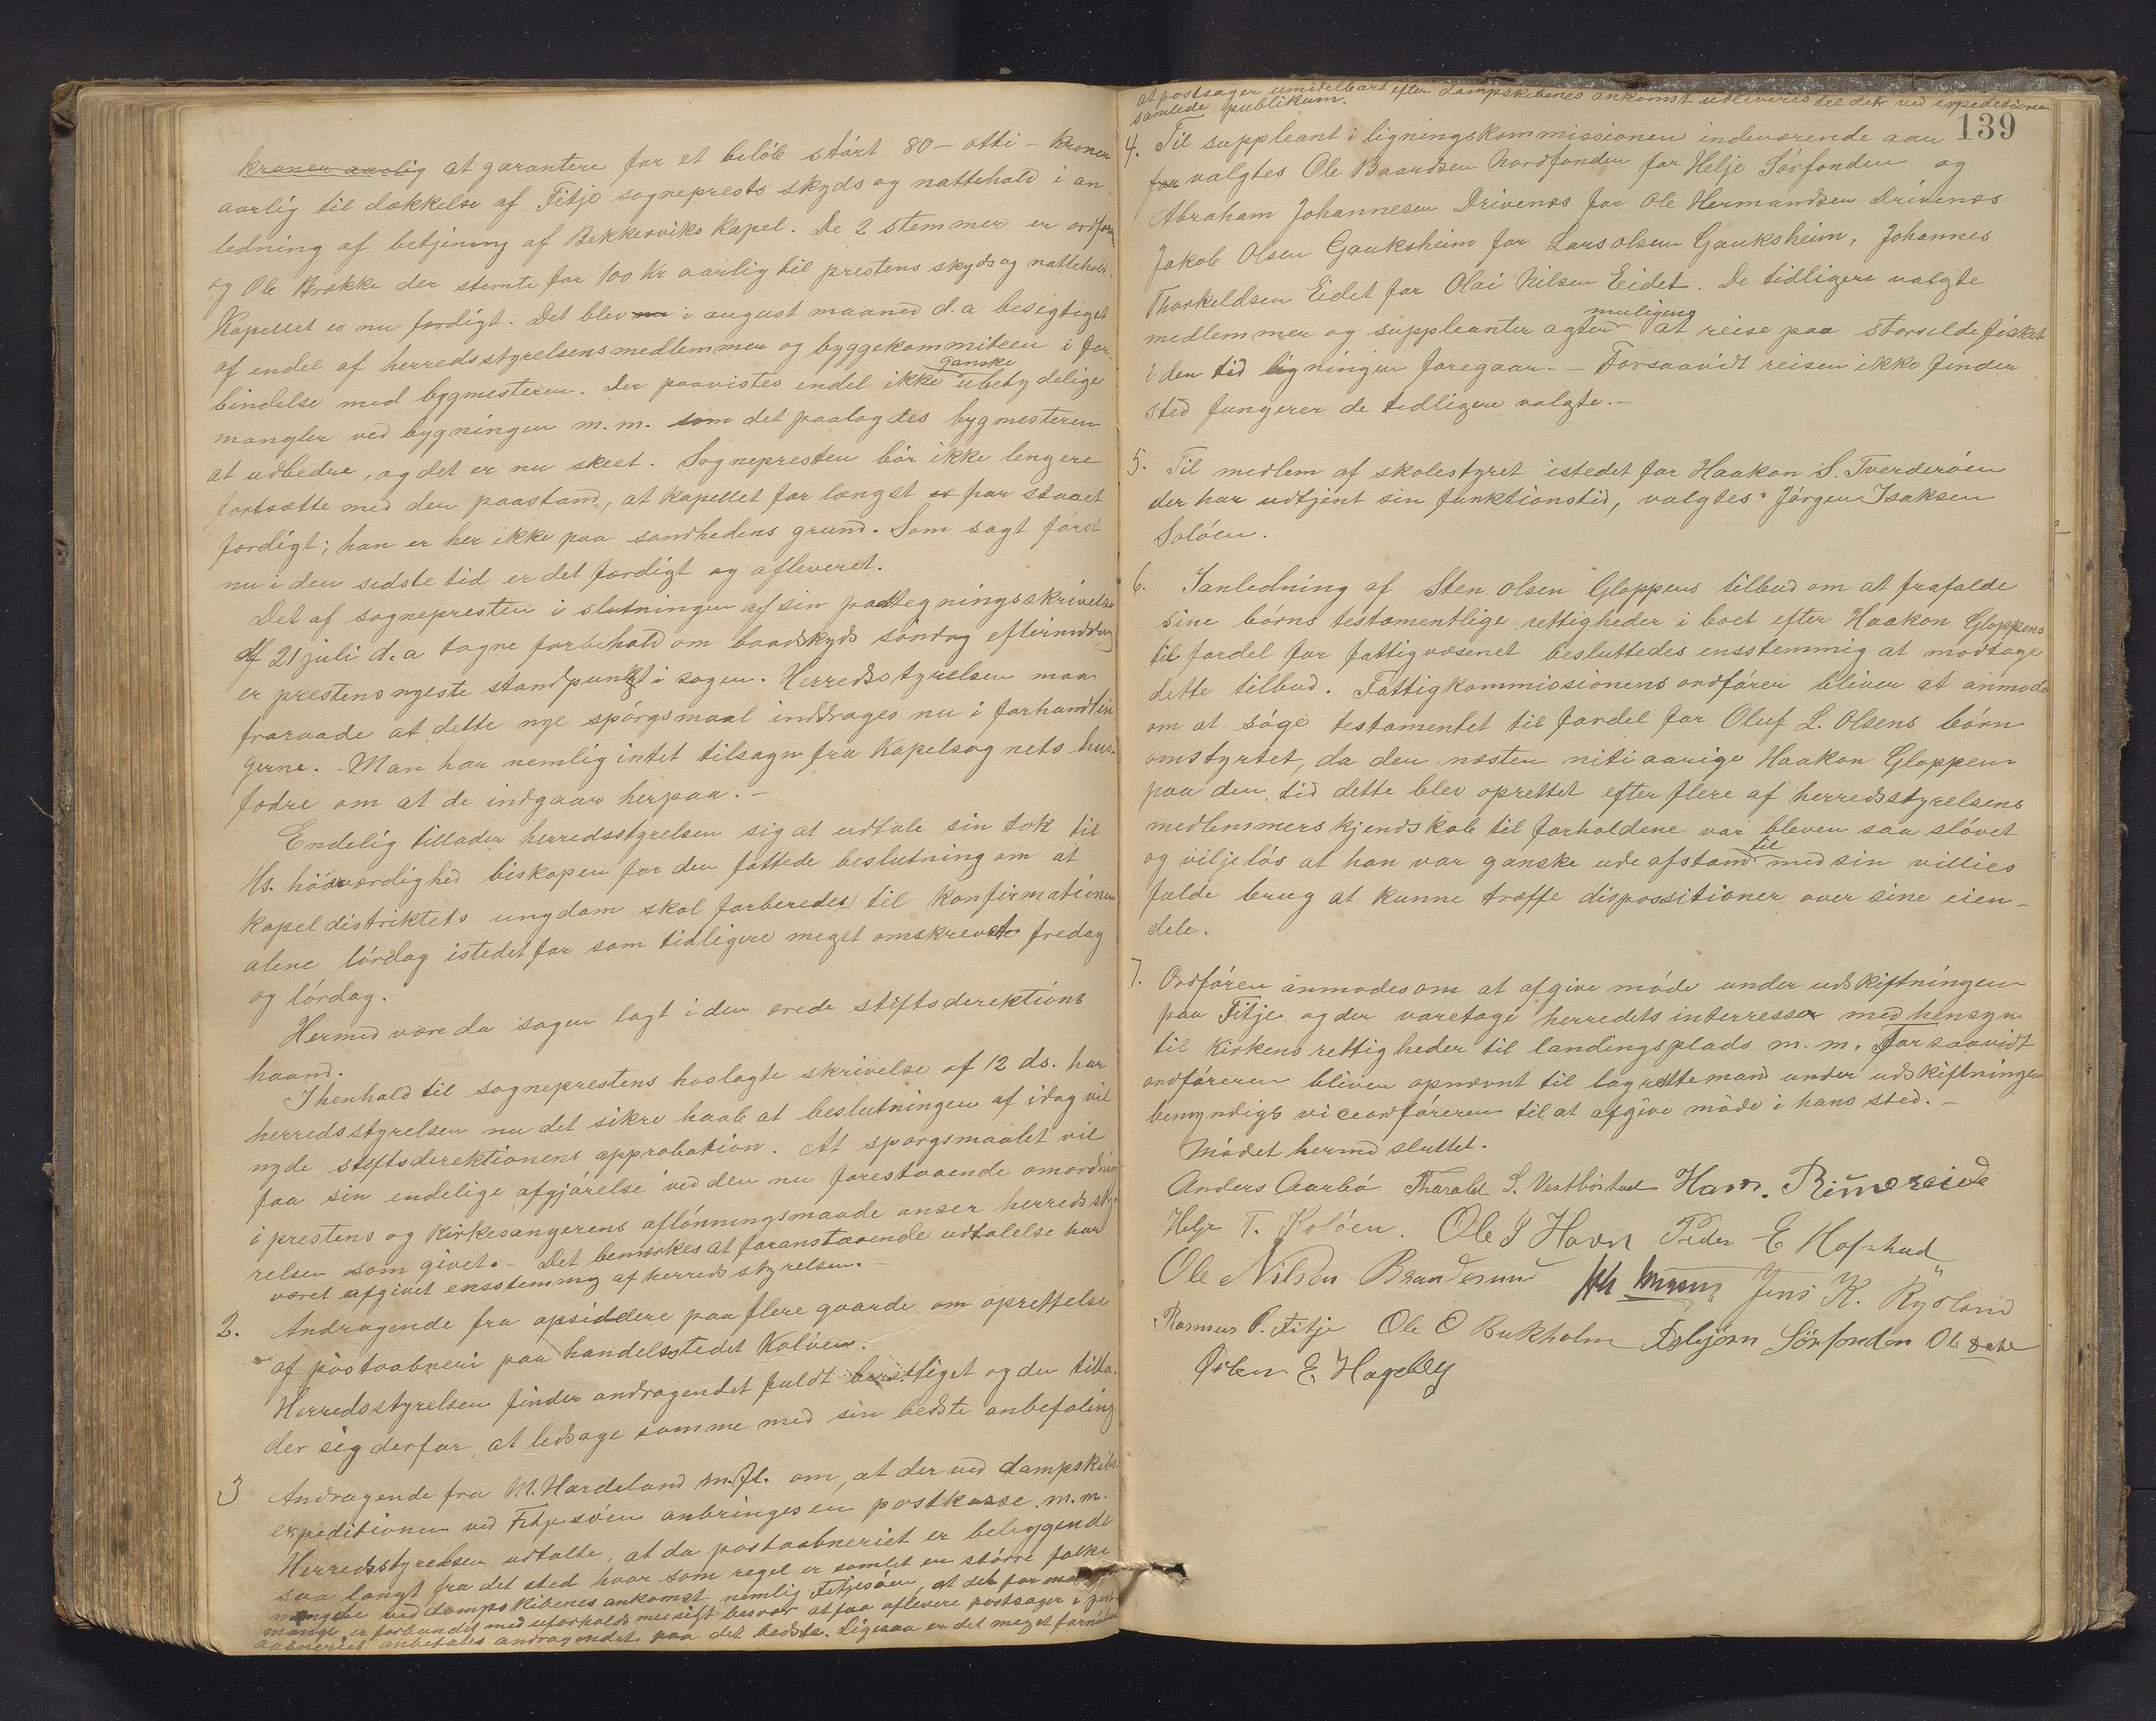 kroner aarlig at garantere for et beløb stórt 80 - otti - kroner
aarlig til dækkelse af Fitje sogneprests skyds og nattehold i an-
ledning af betjening af Bekkerviks Kapel. De 2 stemmer er ordfører
og Ole Brække der stemte for 100 Kr aarlig til prestens skyds og nattehold.
Kapellet er nu færdigt. Det blev nu i august maaned d.a besigtiget
af endel af herredsstyrelsens medlemmer og byggekommiteen i for-
bindelse med bygmesteren. Der paavistes endel ikke ganske ubetydelige
mangler ved bygningen m.m. som det paalagdes bygmesteren
at udbedre, og det er nu skeet. Sognepresten bór ikke lengere
fortsætte med den paastand, at kapellet for længst er har staaet
færdigt; han er her ikke paa sandhedens grund. Som sagt fórst
nu i den sidste tid er det færdigt og afleveret.
Det af sognepresten i slutningen af sin paategningsskrivelse
af 21 juli d.a tagne forbehold om baadskyds sóndag eftermiddag
er prestens nyeste standpunkt i sagen. Herredsstyrelsen maa
fraraade at dette nye spórgsmaal inddrages nu i forhandlin-
gerne. - Man har nemlig intet tilsagn fra Kapelsognets hus-
fædre om at de indgaar herpaa. -
Endelig tillader herredsstyrelsen sig at udtale sin tak til
Hs. hóiærværdighed biskopen for den fattede beslutning om at
kapeldistriktets ungdom skal forberedes til konfirmationen
alene lórdag istedet for som tidligere meget omskrevet fredag
og lórdag.
Hermed være da sagen lagt i den ærede stiftsdirektions
haand.
I henhold til sogneprestens hoslagte skrivelse af 12 ds. har
herredsstyrelsen nu det sikre haab at beslutningen af idag vil
nyde stiftsdirektionens approbation. At spørgsmaalet vil
faa sin endelige afgjórelse ved den nu forestaaende omordning
i prestens og kirkesangerens aflónningsmaade anser herredssty-
relsen som givet. - Det bemærkes at foranstaaende udtalelse har
været afgivet ensstemmig af herredsstyrelsen. -
2. Andragende fra opsiddere paa flere gaarde om oprettelse
af postaabneri paa handelsstedet Kolóen.
Herredsstyrelsen finder andragendet fuldt berettiget og den tilla-
der sig derfor, at ledsage samme med sin bedste anbefaling
3 Andragende fra M. Hardeland m.fl. om, at der ved dampskibs-
expeditionen ved Fitjesóen anbringes en postkasse m.m.
Herredsstyrelsen udtalte, at da postaabneriet er beliggende
saa langt fra det sted hvor som regel er samlet en stórre folke
mængde ved dampskibenes ankomst nemlig Fitjesóen, at det for
mange er forbundet med uforholdsmessigt besvær at faa aflevere postsager i post-
aabneriet anbefales andragendet paa det bedste. Ligesaa er det meget fornódent
139
at postsager umidelbart efter dampskibenes ankomst udleveres til det ved expeditionen
samlede publikum.
4. Til suppleant i ligningskommissionen indeværende aar
for valgtes Ole Baardsen Nordfonden for Helje Sórfonden og
Abraham Johannesen Drivenes for Ole Hermandsen Drivenes
Jakob Olsen Gauksheim for Lars olsen Gauksheim, Johannes
Thorkeldsen Eidet for Olai Nilsen Eidet. De tidligere valgte
medlemmer og suppleanter agter muligens at reise paa storsildefisket
i den tid ligningen foregaar. - Forsaavidt reisen ikke finder
sted fungerer de tidligere valgte. -
5. Til medlem af skolestyret istedet for Haakon S. Tverderóen
der har udtjent sin funktionstid, valgtes Jórgen Isaksen
Solóen.
6. Ianledning af Sten Olsen Gloppens tilbud om at frafalde
sine bórns testamentlige rettigheder i boet efter Haakon Gloppens
til fordel for fattigvæsenet besluttedes ensstemmig at modtage
dette tilbud. Fattigkommissionens ordfórer bliver at anmode
om at sóge testamentet til fordel for Oluf L. Olsens bórn
omstyrtet, da den næsten niti aarige Haakon Gloppen
paa den tid dette blev oprettet efter flere af herredsstyrelsens
medlemmers kjendskab til forholdene var bleven saa slóvet
og viljelós at han var ganske ude afstand til med sin villies
fulde brug at kunne træffe dispossitioner over sine eien-
dele.
7. Ordfóren anmodes om at afgive móde under udskiftningen
paa Fitje og der varetage herredets interresser med hensyn
til Kirkens rettigheder til landingsplads m.m. Forsaavidt
ordfóreren bliver opnævnt til lagrettemand under udskiftningen
bemyndiges viceordfóreren til at afgive móde i hans sted. -
Módet hermed sluttet.
Anders Aarbó Tharald S. Vestbóstad Hans. Rimereide
Helje T. Kolóen. Ole S Havn Peder E Hofstad
Ole Nilsen Brandesund Jens K. Rydland
Rasmus P. Fitje Ole O Bukholm Asbjórn Sórfonden Ole
E. Hageberg